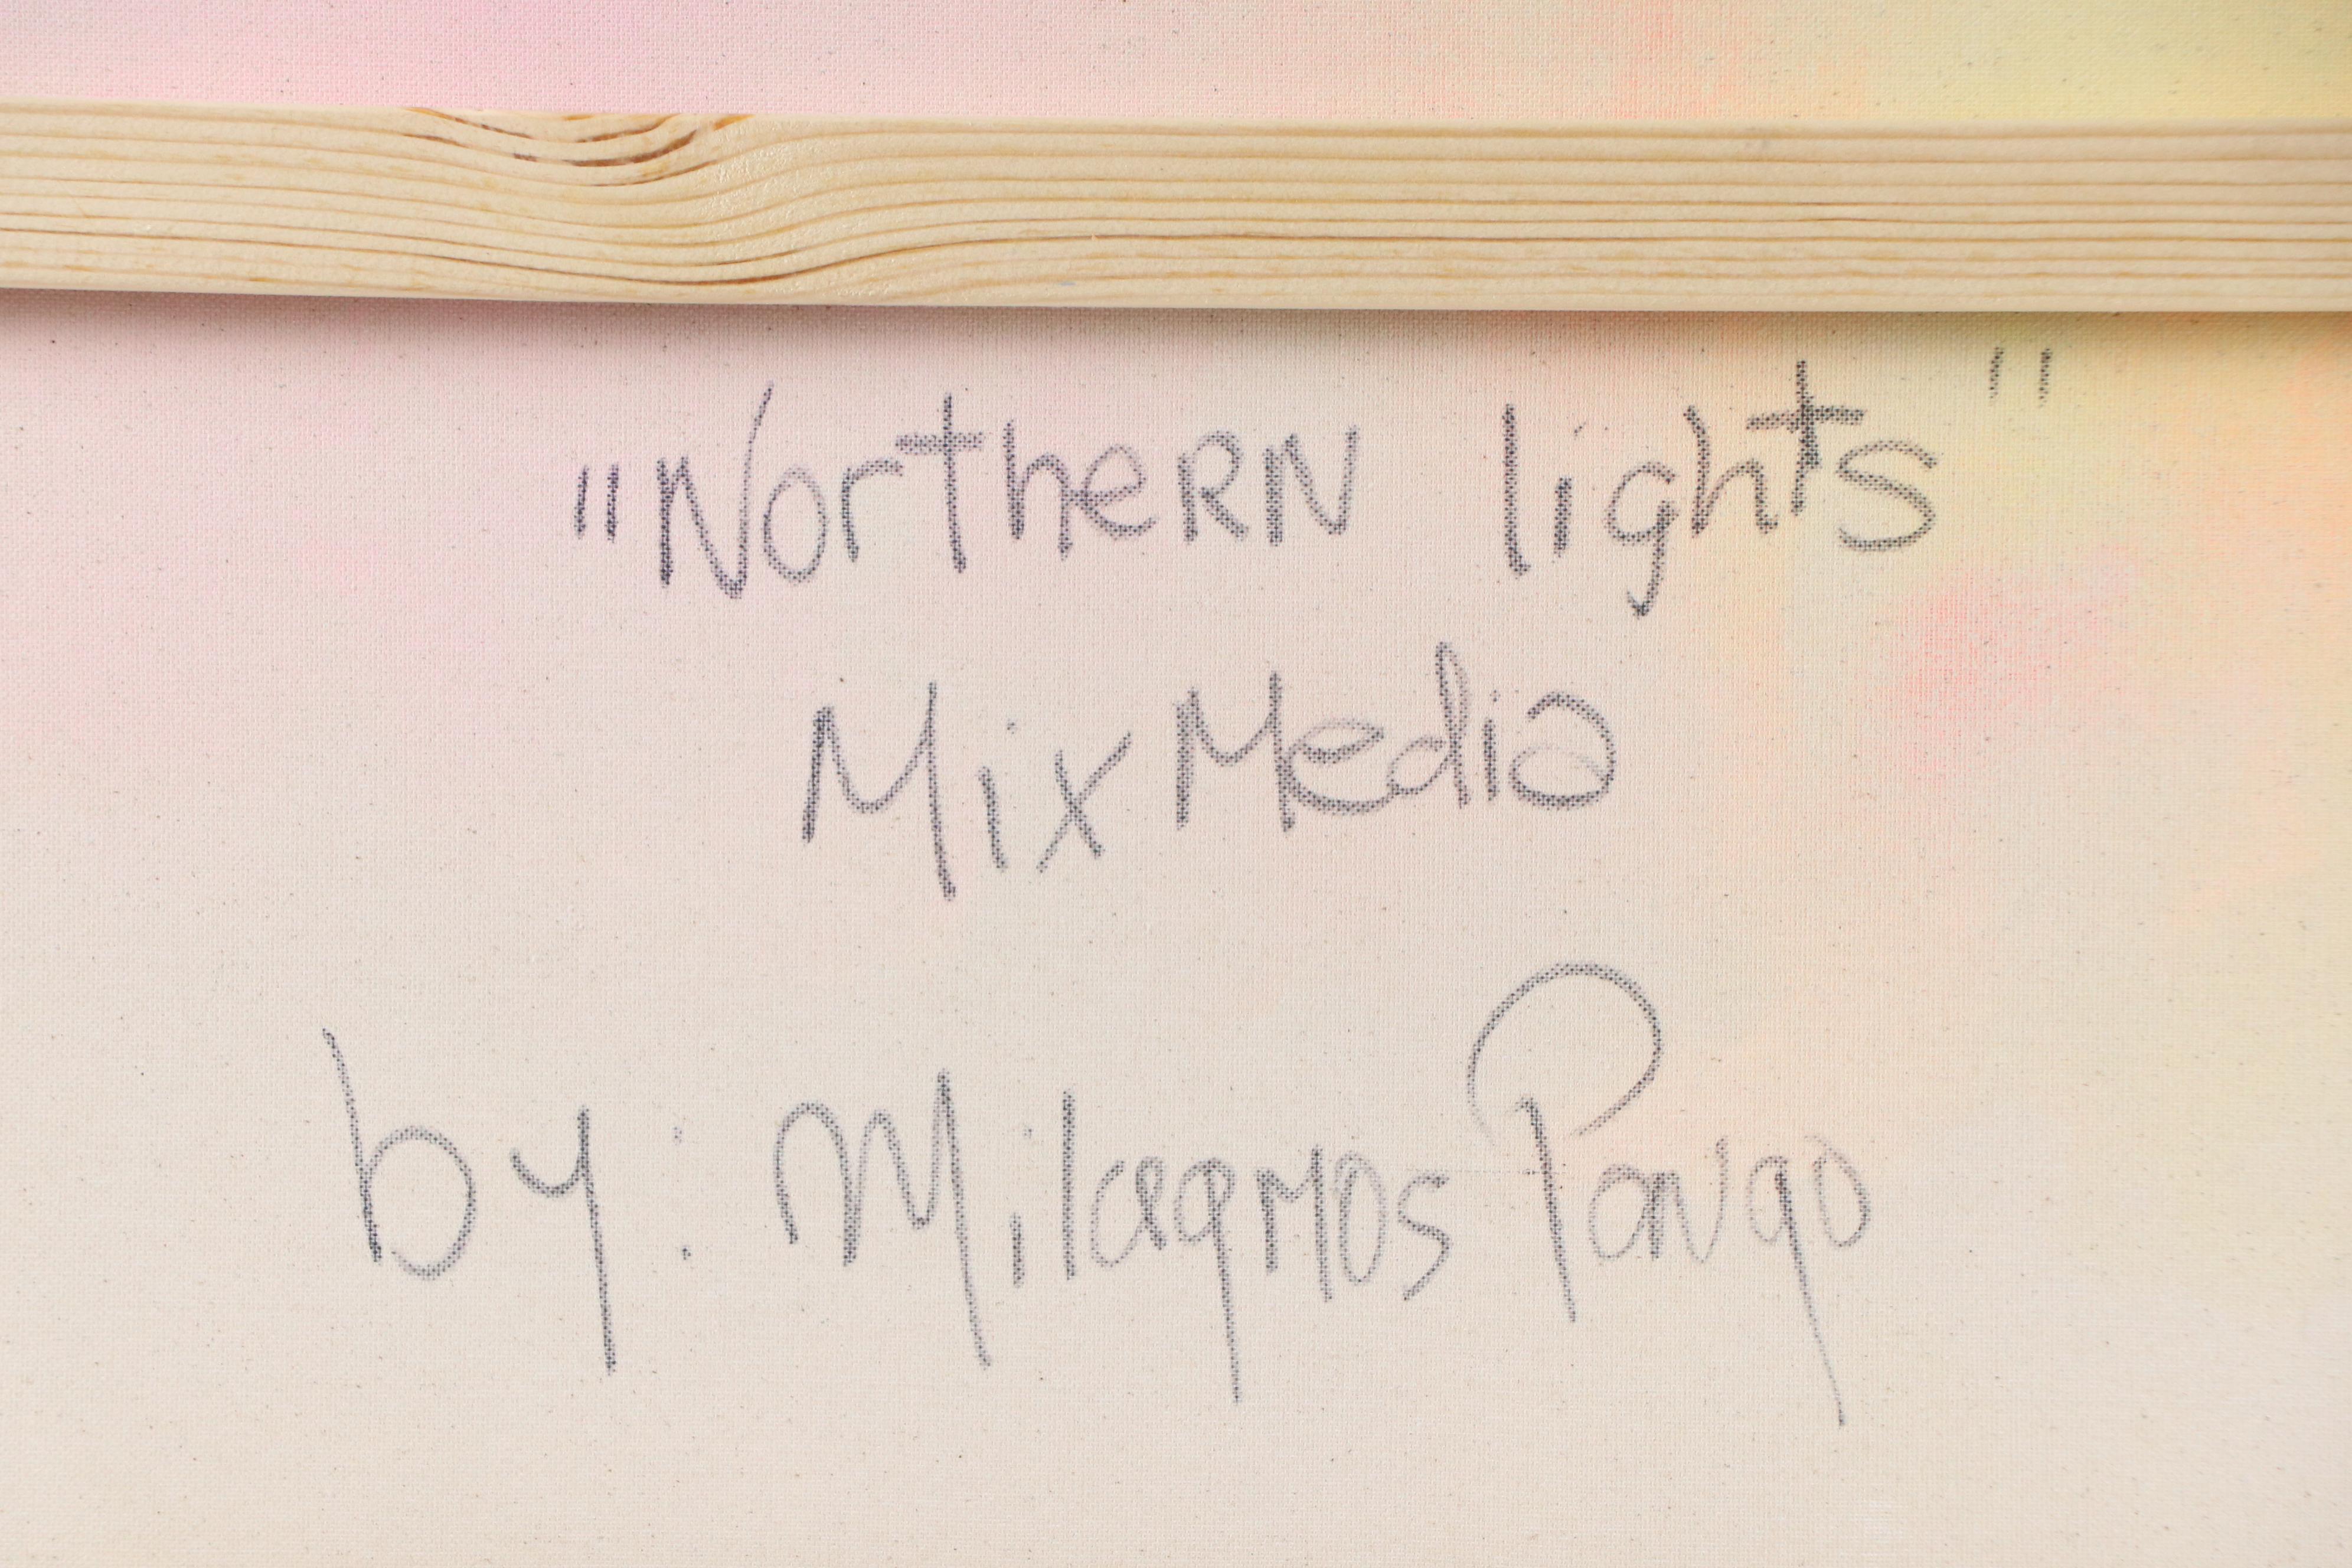 "Northern lights"
Mix Media
by: Milagros Pongo